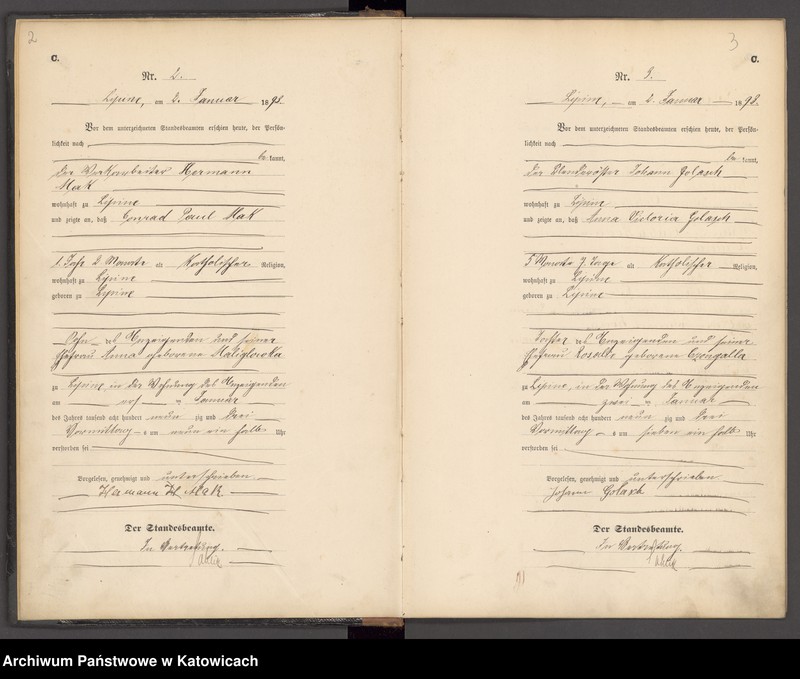 2
C.
Nr. 2.
Lipine, am 2. Januar 1893
Vor dem unterzeichneten Standesbeamten erschien heute, der Persön-
lichkeit nach
be kannt,
der Hermann
Mak
wohnhaft zu Lipine
und zeigte an, daß Conrad Paul Mak
1 Jahr 2 Monate alt Katholischer Religion,
wohnhaft zu Lipine
geboren zu Lipine
Sohn des Anzeigenden und seiner
Ehefrau Anna geborene
zu Lipine in der Wohnung des Anzeigenden
am Januar
des Jahres tausend acht hundert neun zig und drei
Vormittags um neun ein halb Uhr
verstorben sei
Vorgelesen, genehmigt und unterschrieben
Hermann Mak
Der Standesbeamte.
In Vertretung.
3
C.
Nr. 3.
Lipine, am 2. Januar 1893.
Vor dem unterzeichneten Standesbeamten erschien heute, der Persön-
lichkeit nach
be kannt,
der Johann Golasch
wohnhaft zu Lipine
und zeigte an, daß Anna Victoria Golasch
5 Monate 7 Tage alt Katholischer Religion,
wohnhaft zu Lipine
geboren zu Lipine
Tochter des Anzeigenden und seiner
Ehefrau Rosalie geborene
zu Lipine, in der Wohnung des Anzeigenden
am zwei Januar
des Jahres tausend acht hundert neun zig und drei
Vormittags um sieben ein halb Uhr
verstorben sei
Vorgelesen, genehmigt und unterschrieben
Johann
Der Standesbeamte.
In Vertretung.
Archiwum Państwowe w Katowicach